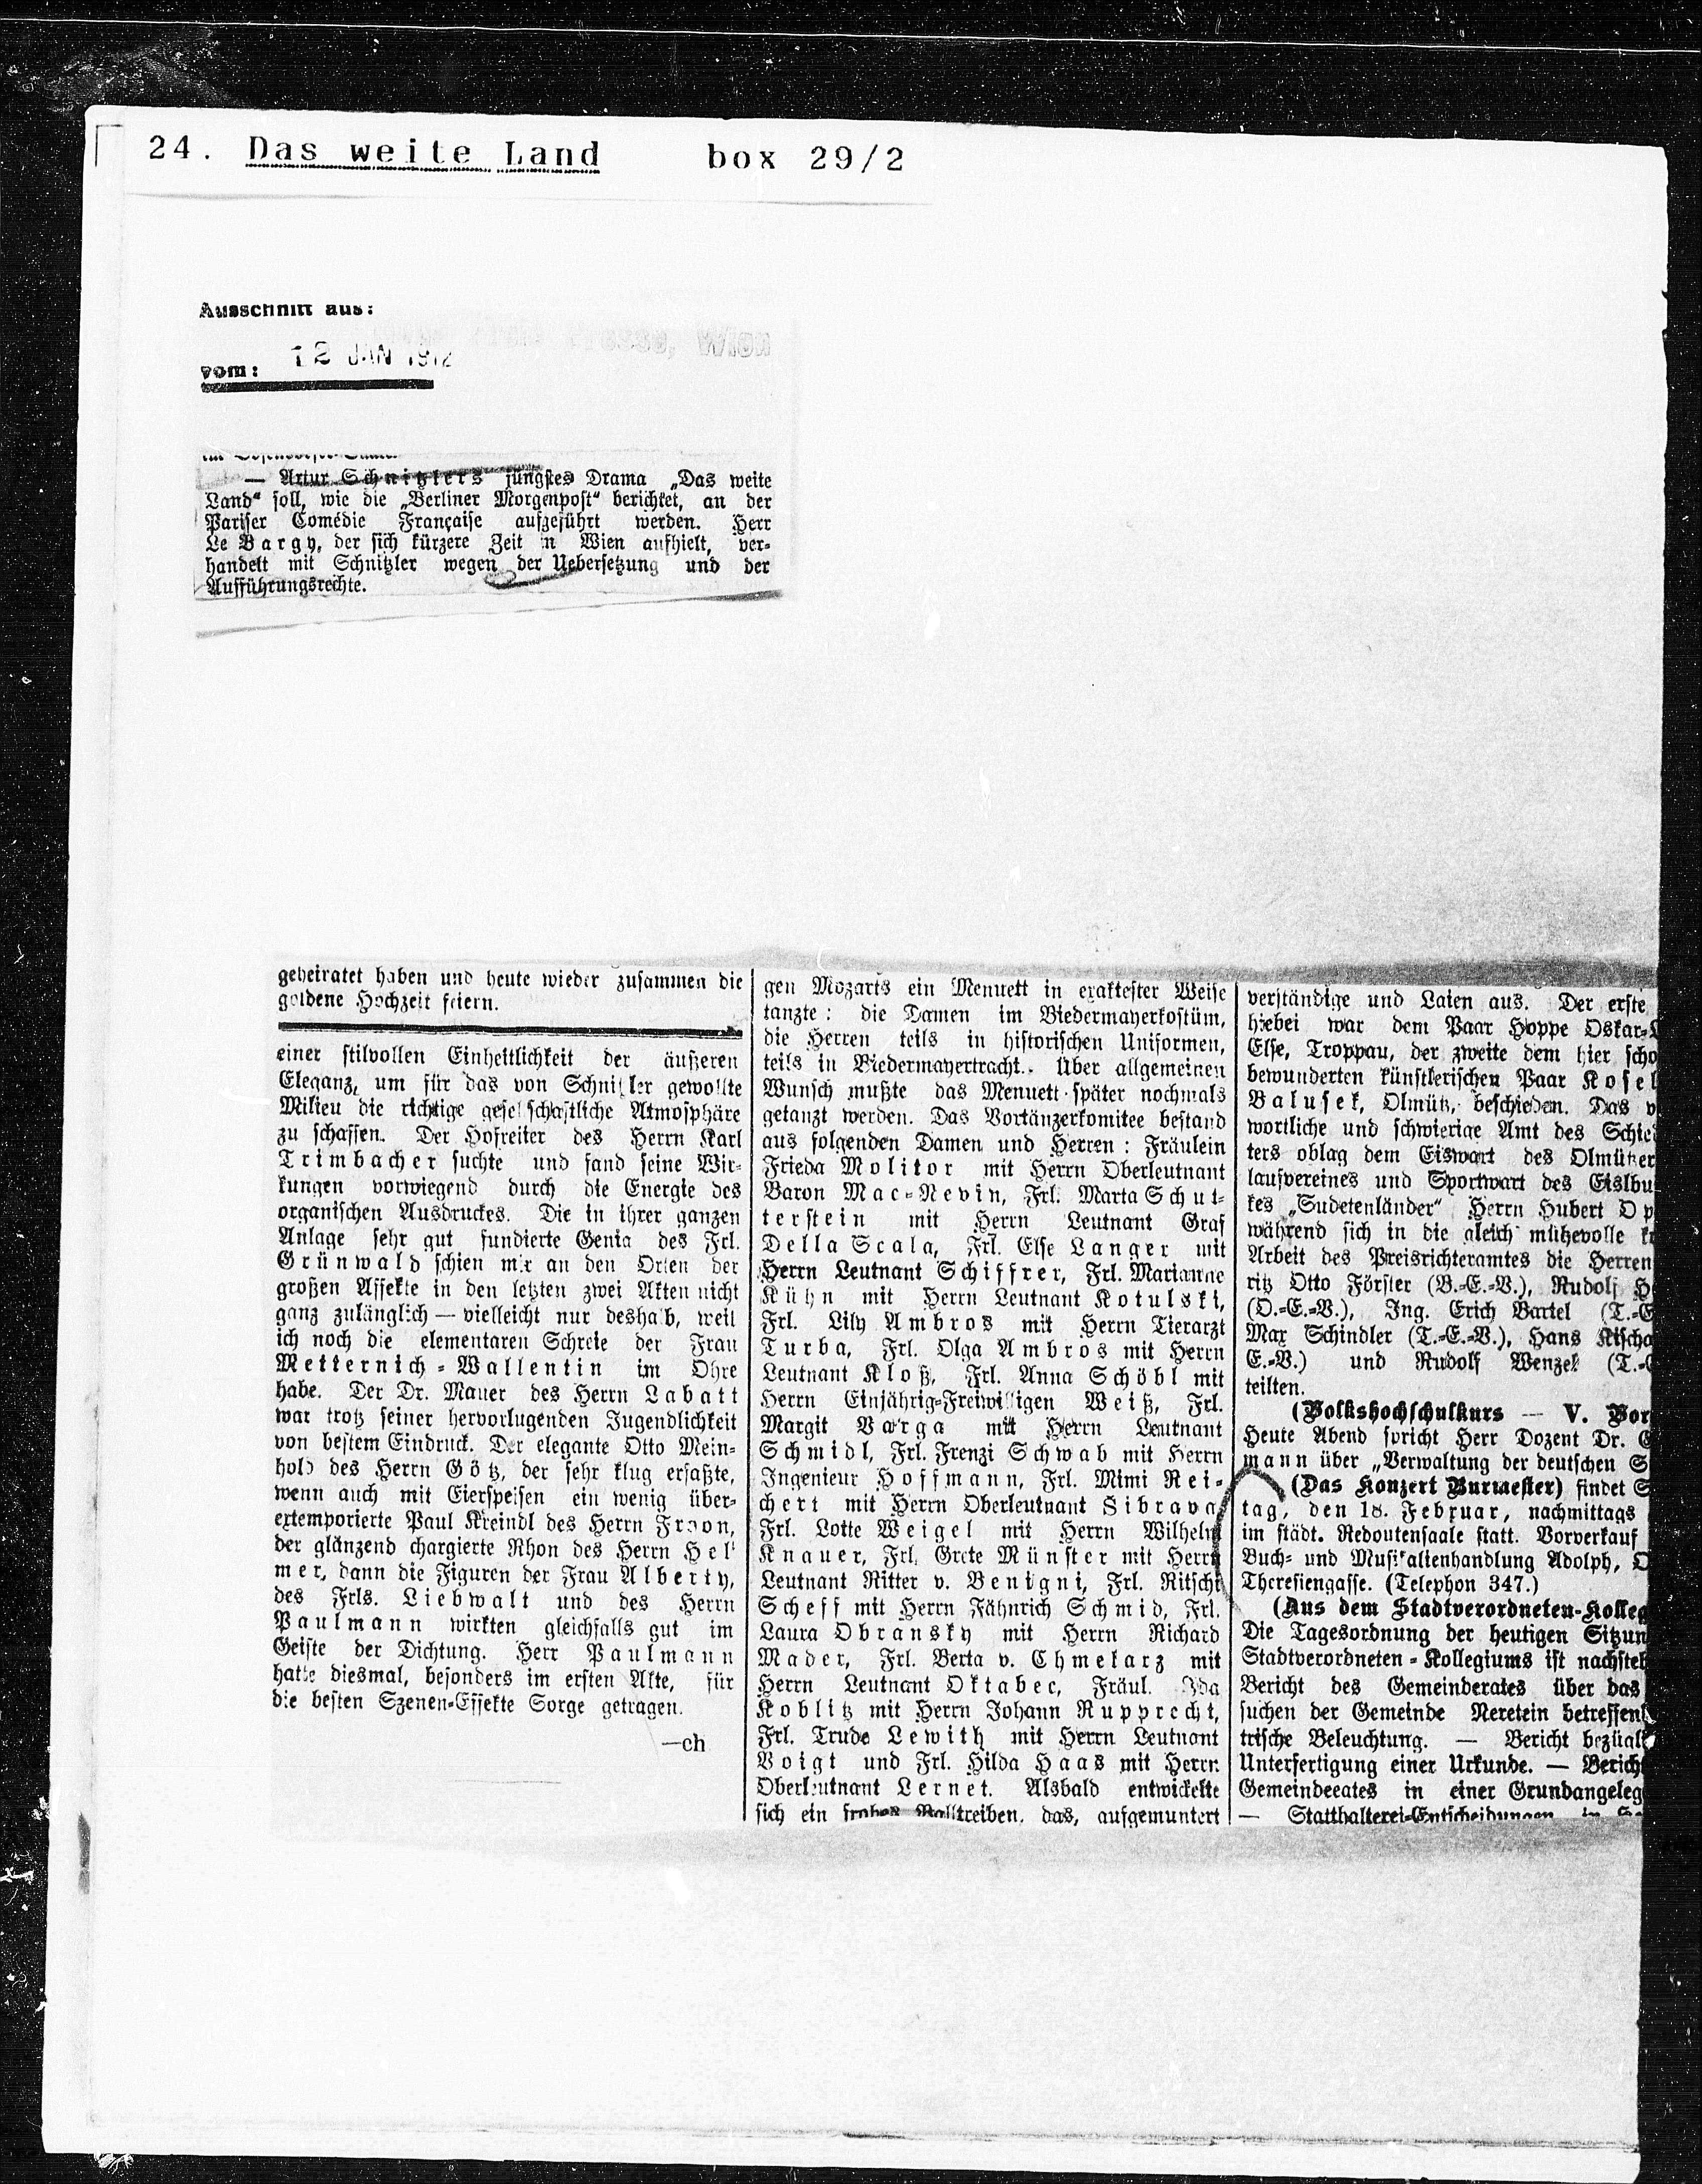 24. Das weite Land box 29/2
Ausschnitt aus:
Presse, Wien
vom: 12 JAN 1912
— Artur Schnitzlers jüngstes Drama „Das weite
Land“ soll, wie die „Berliner Morgenpost“ berichtet, an der
Pariser Comédie Française aufgeführt werden. Herr
Le Bargy, der sich kürzere Zeit in Wien aufhielt, ver-
handelt mit Schnitzler wegen der Uebersetzung und der
Aufführungsrechte.
geheiratet haben und heute wieder zusammen die
goldene Hochzeit feiern.
einer stilvollen Einheitlichkeit der äußeren
Eleganz, um für das von Schnitzler gewollte
Milieu die richtige gesellschaftliche Atmosphäre
zu schaffen. Der Hofreiter des Herrn Karl
Trimbacher suchte und fand seine Wir-
kungen vorwiegend durch die Energie des
organischen Ausdruckes. Die in ihrer ganzen
Anlage sehr gut fundierte Genia des Frl.
Grünwald schien mir an den Orten der
großen Affekte in den letzten zwei Akten nicht
ganz zulänglich — vielleicht nur deshalb, weil
ich noch die elementaren Schreie der Frau
Metternich-Wallentin im Ohre
habe. Der Dr. Mauer des Herrn Labatt
war trotz seiner hervorlugenden Jugendlichkeit
von bestem Eindruck. Der elegante Otto Mein-
hold des Herrn Götz, der sehr klug erfaßte,
wenn auch mit Eierspeisen ein wenig über-
extemporierte Paul Kreindl des Herrn Froon,
der glänzend chargierte Rhon des Herrn Hel-
mer, dann die Figuren der Frau Alberty,
des Frls. Liebwalt und des Herrn
Paulmann wirkten gleichfalls gut im
Geiste der Dichtung. Herr Paulmann
hatte diesmal, besonders im ersten Akte, für
die besten Szenen-Effekte Sorge getragen.
—ch
gen Mozarts ein Menuett in exaktester Weise
tanzte: die Damen im Biedermayerkostüm,
die Herren teils in historischen Uniformen,
teils in Biedermayertracht. Über allgemeinen
Wunsch mußte das Menuett später nochmals
getanzt werden. Das Vortänzerkomitee bestand
aus folgenden Damen und Herren: Fräulein
Frieda Molitor mit Herrn Oberleutnant
Baron Mac-Nevin, Frl. Marta Schut-
terstein mit Herrn Leutnant Graf
Della Scala, Frl. Else Langer mit
Herrn Leutnant Schiffrer, Frl. Marianne
Kühn mit Herrn Leutnant Kotulski,
Frl. Lily Ambros mit Herrn Tierarzt
Turba, Frl. Olga Ambros mit Herrn
Leutnant Kloß, Frl. Anna Schöbl mit
Herrn Einjährig-Freiwilligen Weiß, Frl.
Margit Varga mit Herrn Leutnant
Schmidl, Frl. Frenzi Schwab mit Herrn
Ingenieur Hoffmann, Frl. Mimi Rei-
chert mit Herrn Oberleutnant Sibrava,
Frl. Lotte Weigel mit Herrn Wilhelm
Knauer, Frl. Grete Münster mit Herrn
Leutnant Ritter v. Benigni, Frl. Ritschi
Scheff mit Herrn Fähnrich Schmid, Frl.
Laura Obransky mit Herrn Richard
Mader, Frl. Berta v. Chmelarz mit
Herrn Leutnant Oktabec, Fräul. Ida
Koblitz mit Herrn Johann Rupprecht,
Frl. Trude Lewith mit Herrn Leutnant
Voigt und Frl. Hilda Haas mit Herrn
Oberleutnant Lernet. Alsbald entwickelte
sich ein frohes Balltreiben, das, aufgemuntert
verständige und Laien aus. Der erste
hiebei war dem Paar Hoppe Oskar-
Else, Troppau, der zweite dem hier scho
bewunderten künstlerischen Paar Kosel
Balusek, Olmütz, beschieden. Das v
wortliche und schwierige Amt des Schie
ters oblag dem Eiswart des Olmützer
laufvereines und Sportwart des Eislbu
kes „Sudetenländer“ Herrn Hubert Op
während sich in die gleich mühevolle
Arbeit des Preisrichteramtes die Herren
ritz Otto Förster (B.-E.-V.), Rudolf H
(O.-E.-V.), Ing. Erich Bartel (T.-E
Max Schindler (T.-E.-V.), Hans Kischa
E.-V.) und Rudolf Wenzel (T.-
teilten.
(Volkshochschulkurs — V. Vor
Heute Abend spricht Herr Dozent Dr.
mann über „Verwaltung der deutschen S
(Das Konzert Burmester) findet S
tag, den 18. Februar, nachmittags
im städt. Redoutensaale statt. Vorverkauf
Buch- und Musikalienhandlung Adolph, O
Theresiengasse. (Telephon 347.)
(Aus dem Stadtverordneten-Kolleg
Die Tagesordnung der heutigen Sitzun
Stadtverordneten-Kollegiums ist nachsteh
Bericht des Gemeinderates über das
suchen der Gemeinde Neretein betreffen
trische Beleuchtung. — Bericht bezügl
Unterfertigung einer Urkunde. — Bericht
Gemeindeeates in einer Grundangeleg
— Statthalterei-Entscheidungen in